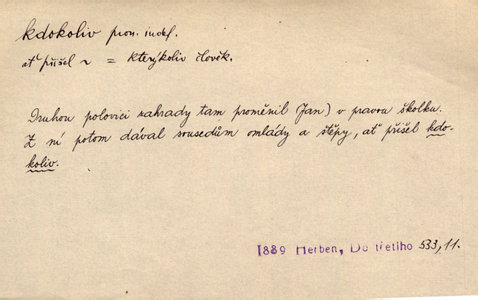 kdokoliv pron. indef.
ať přišel ~ = kterýkoliv člověk.
Druhou polovici zahrady tam proměnil (Jan) v pravou školku.
Z ní potom dával sousedům omlády a štěpy, ať přišel kdo-
koliv.
1889 Herben, Do třetího 533, 11.